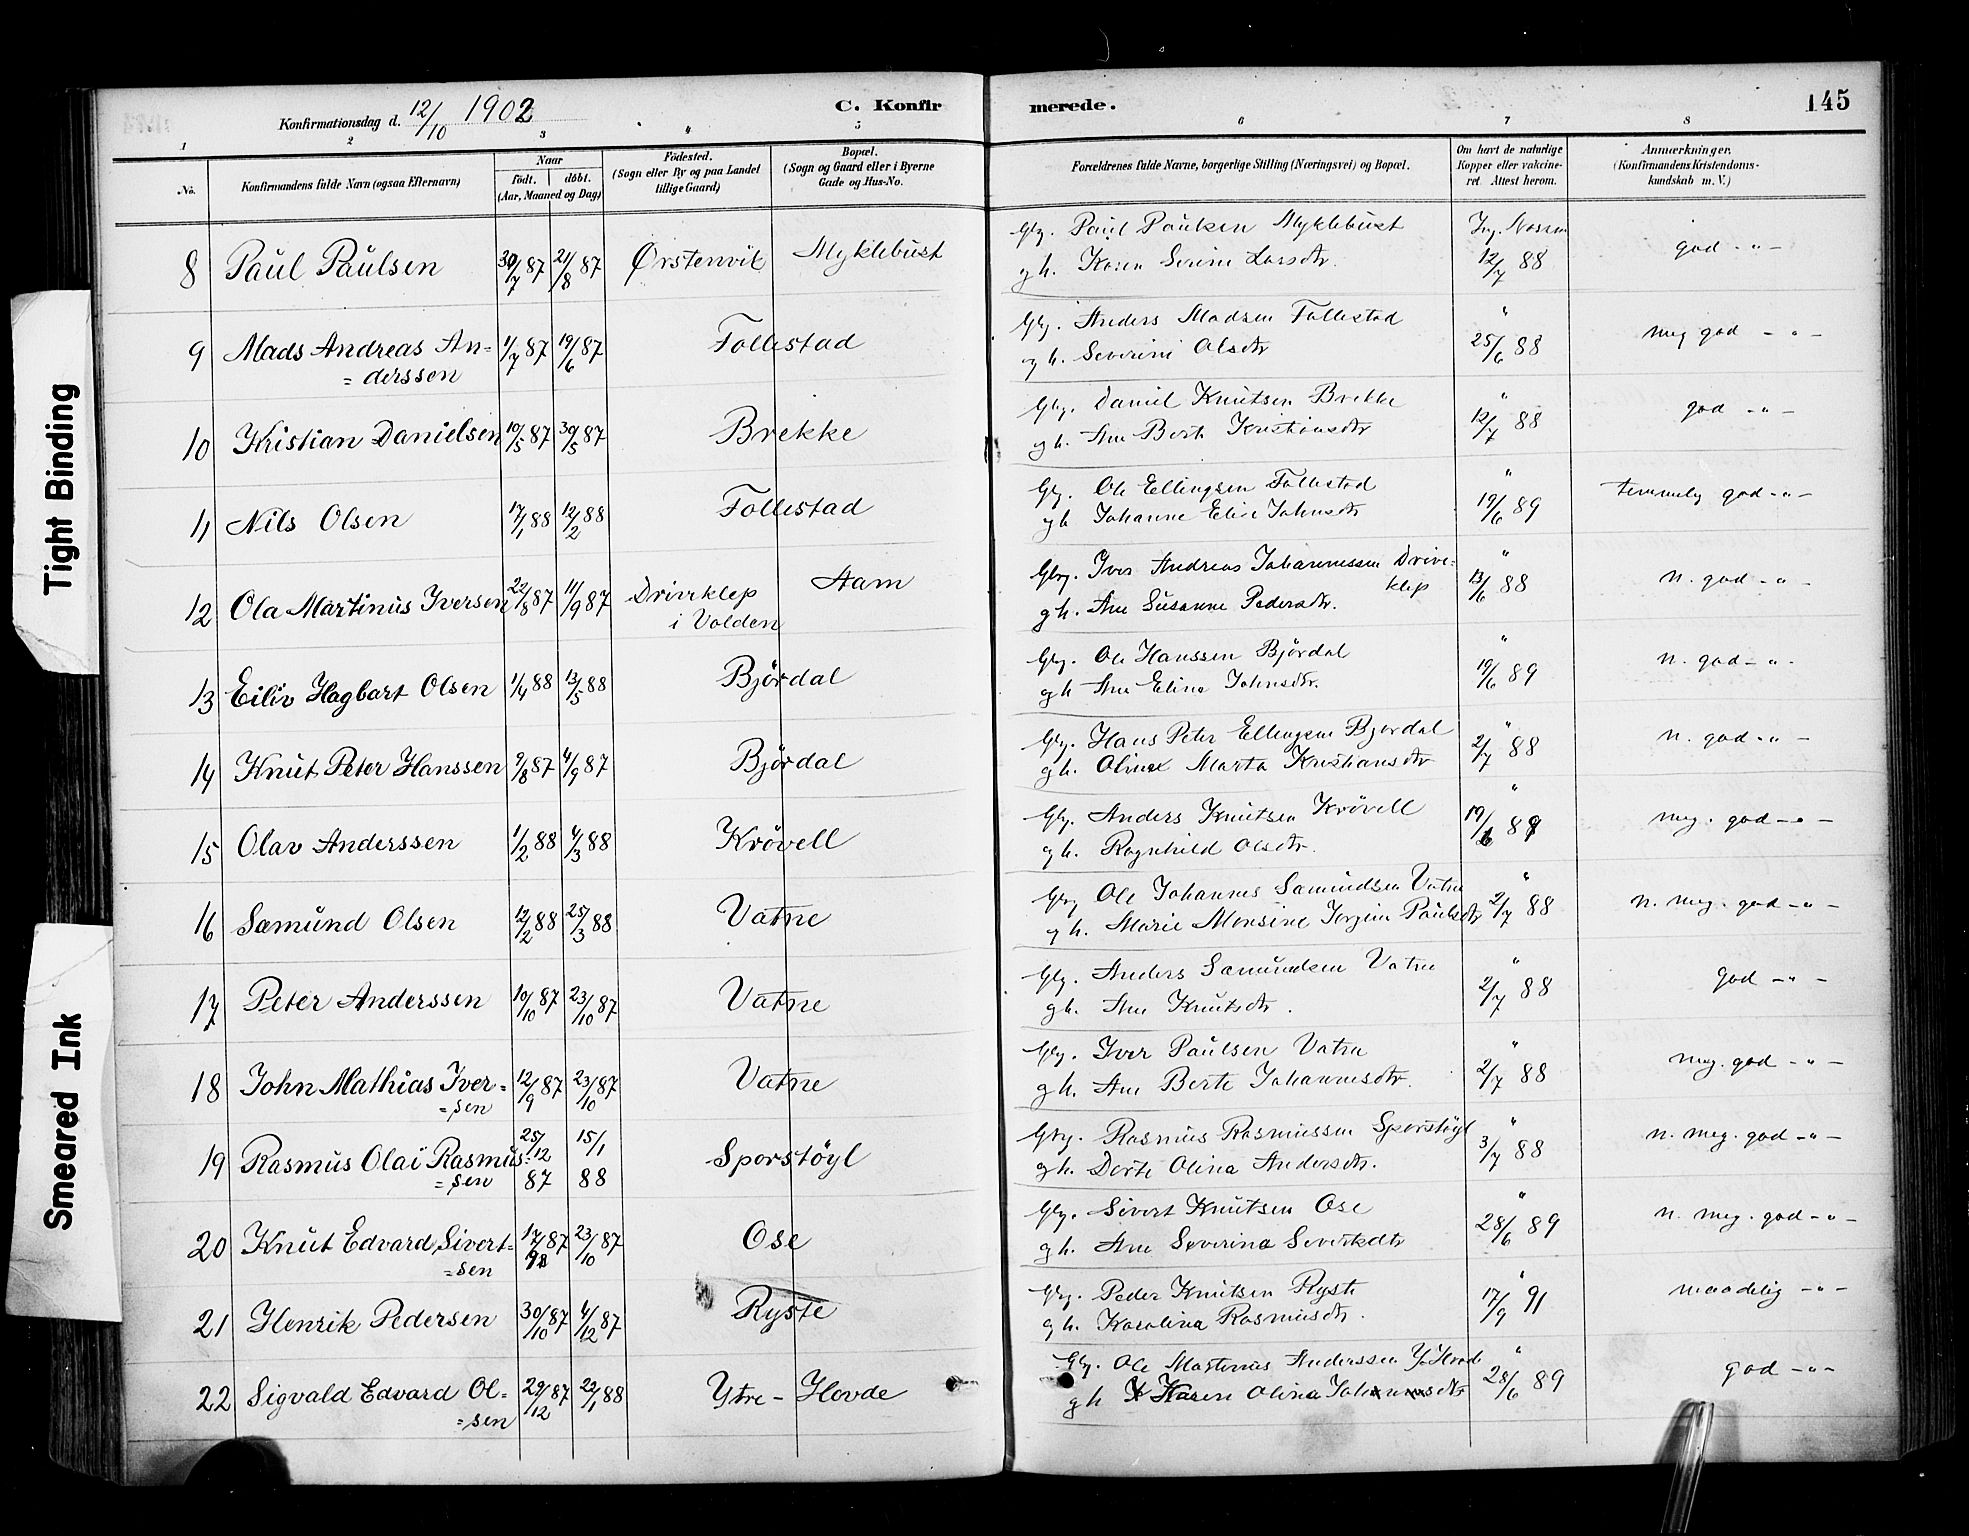 Konfirmationsdag d. 12/10 1902
C. Konfirmerede.
145
1 2 3 4 5 6 7 8
No.
Konfirmandens fulde Navn (ogsaa Efternavn)
Naar
födt. döbt.
(Aar, Maaned og Dag)
Födested.
(Sogn eller By og paa Landet
tillige Gaard)
Bopæl.
(Sogn og Gaard eller i Byerne
Gade og Hus-No.
Forældrenes fulde Navne, borgerlige Stilling (Næringsvei) og Bopæl.
Om havt de naturlige
Kopper eller vakcine-
ret. Attest herom.
Anmærkninger.
(Konfirmandens Kristendoms-
kundskab m. V.)
8 Paul Paulsen 30/7 87 21/8 87 Ørstenvik Myklebust
Gbr. Paul Paulsen Myklebust
gh. Karen Serine Larsdtr.
12/7 88 god -"-
9 Mads Andreas An=
=derssen 1/7 87 19/6 87 Follestad
Gbr. Anders Madsen Follestad
gh. Severine Olsdtr
" 25/6 88 meg god -"-
10 Kristian Danielsen 10/5 87 30/5 87 Brekke
Gbr. Daniel Knutsen Brekke
gh. Ane Berte Kristiansdtr
" 12/7 88 god -"-
11 Nils Olsen 17/1 88 12/2 88 Follestad
Gbr. Ole Ellingsen Follestad
gh Johanne Elise Johnsdtr
" 19/6 89 temmelig god -"-
12 Ola Martinus Iversen 22/8 87 11/9 87 Driveklep
i Volden Aam
Gbr. Iver Andreas Johannessen Drive-
klep
gh. Ane Susanne Pedersdtr.
" 13/6 88 n. god -"-
13 Eiliv Hagbart Olsen 1/4 88 13/5 88 Björdal
Gbr. Ole Hanssen Björdal
gh Ane Elina Johnsdtr.
" 19/6 89 n. god -"-
14 Knut Peter Hanssen 9/8 87 4/9 87 Björdal
Gbr. Hans Peter Ellingsen Bjordal
gh. Oline Marta Kristiansdtr
" 2/7 88 n. god -"-
15 Olav Anderssen 1/2 88 4/3 88 Krövell
Gbr. Anders Knutsen Krövell
gh. Ragnhild Olsdtr.
" 19/6 89 meg. god -"-
16 Sæmund Olsen 12/2 88 25/3 88 Vatne
Gbr Ole Johannes Sæmundsen Vatne
gh. Marie Monsine Jorgine Paulsdtr
" 2/7 88 n. meg. god -"-
17 Peter Anderssen 10/10 87 23/10 87 Vatne
Gbr. Anders Sæmundsen Vatne
gh. Ane Knutsdtr.
" 2/7 88 god -"-
18 John Mathias Iver=
=sen 12/9 87 23/10 87 Vatne
Gbr. Iver Paulsen Vatne
gh. Ane Berte Johannesdtr.
" 2/7 88 meg. god -"-
19 Rasmus Olai Rasmus=
=sen 25/12 87 15/1 88 Sporstöyl
Gbr. Rasmus Rasmussen Sporstöyl
gh. Dorte Olina Andersdtr.
" 3/7 88 n. meg. god -"-
20 Knut Edvard Sivert=
=sen 23/10 87 Ose
Gbr. Sivert Knutsen Ose
gh. Ane Severina Sivertsdtr
" 28/6 89 n. meg. god -"-
21 Henrik Pedersen 30/10 87 4/12 87 Ryste
Gbr. Peder Knutsen Ryste
gh. Karolina Rasmusdtr.
" 17/9 91 maadelig -"-
22 Sigvald Edvard Ol=
=sen 29/12 87 22/1 88 Ytre-Hovde
Gbr. Ole Martinus Anderssen Y. Hovde
gh Karen Olina
" 28/6 89 god -"-
Tight Binding
Smeared Ink